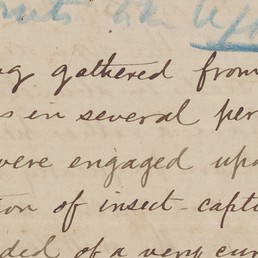 gathered from
in several per
were engaged upo
tion of insect-captu
ded of a very cur